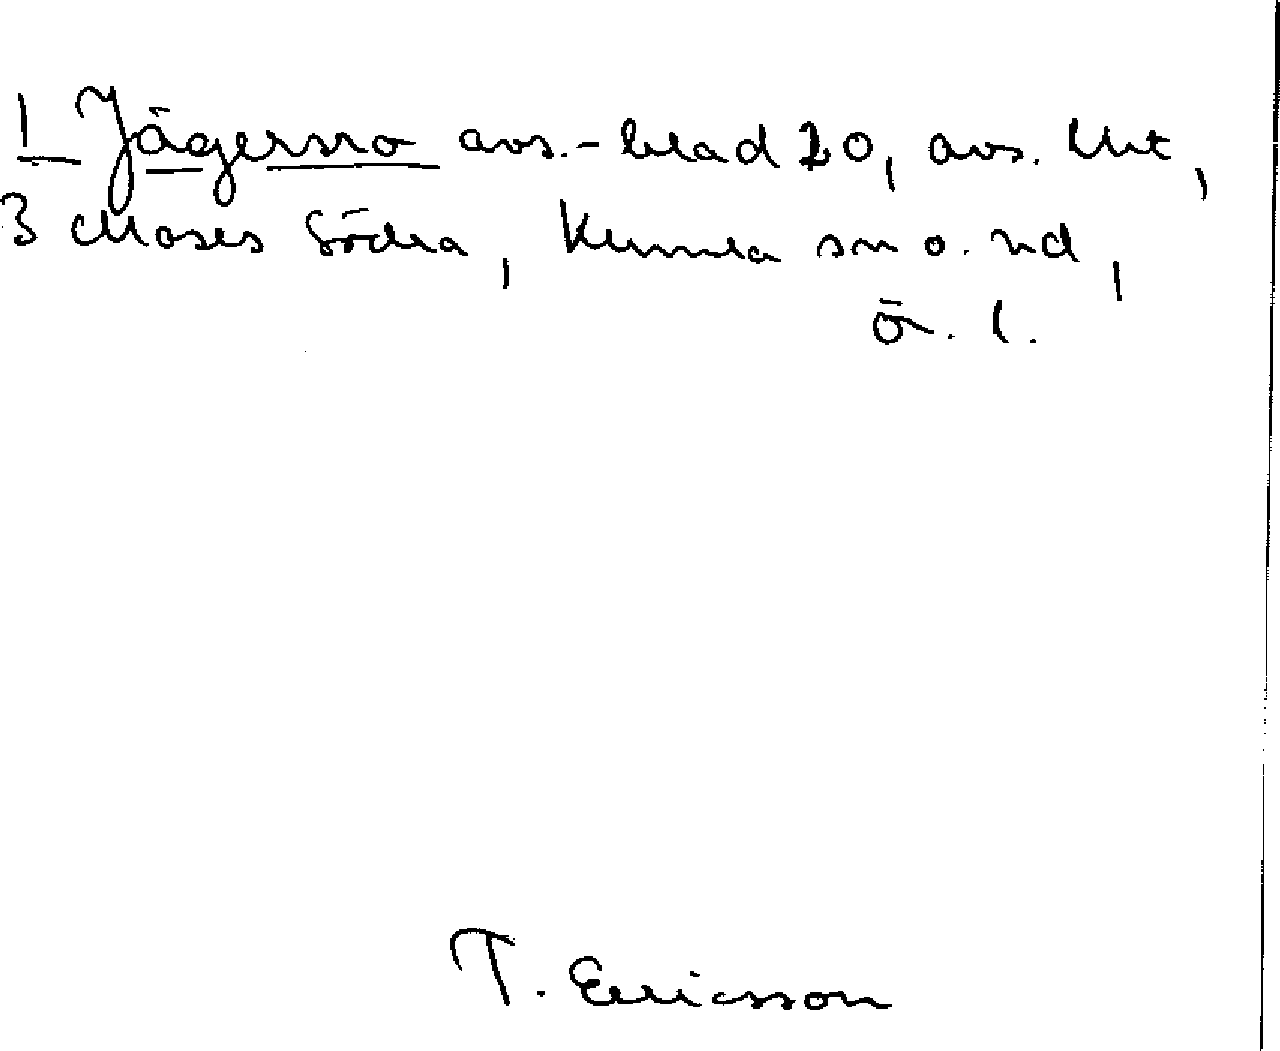 1 Jägersro avs.-blad 20, avs. lht,
3 Mosjös Södra, Kumla sn o. hd,
ö. l.
T. Ericsson